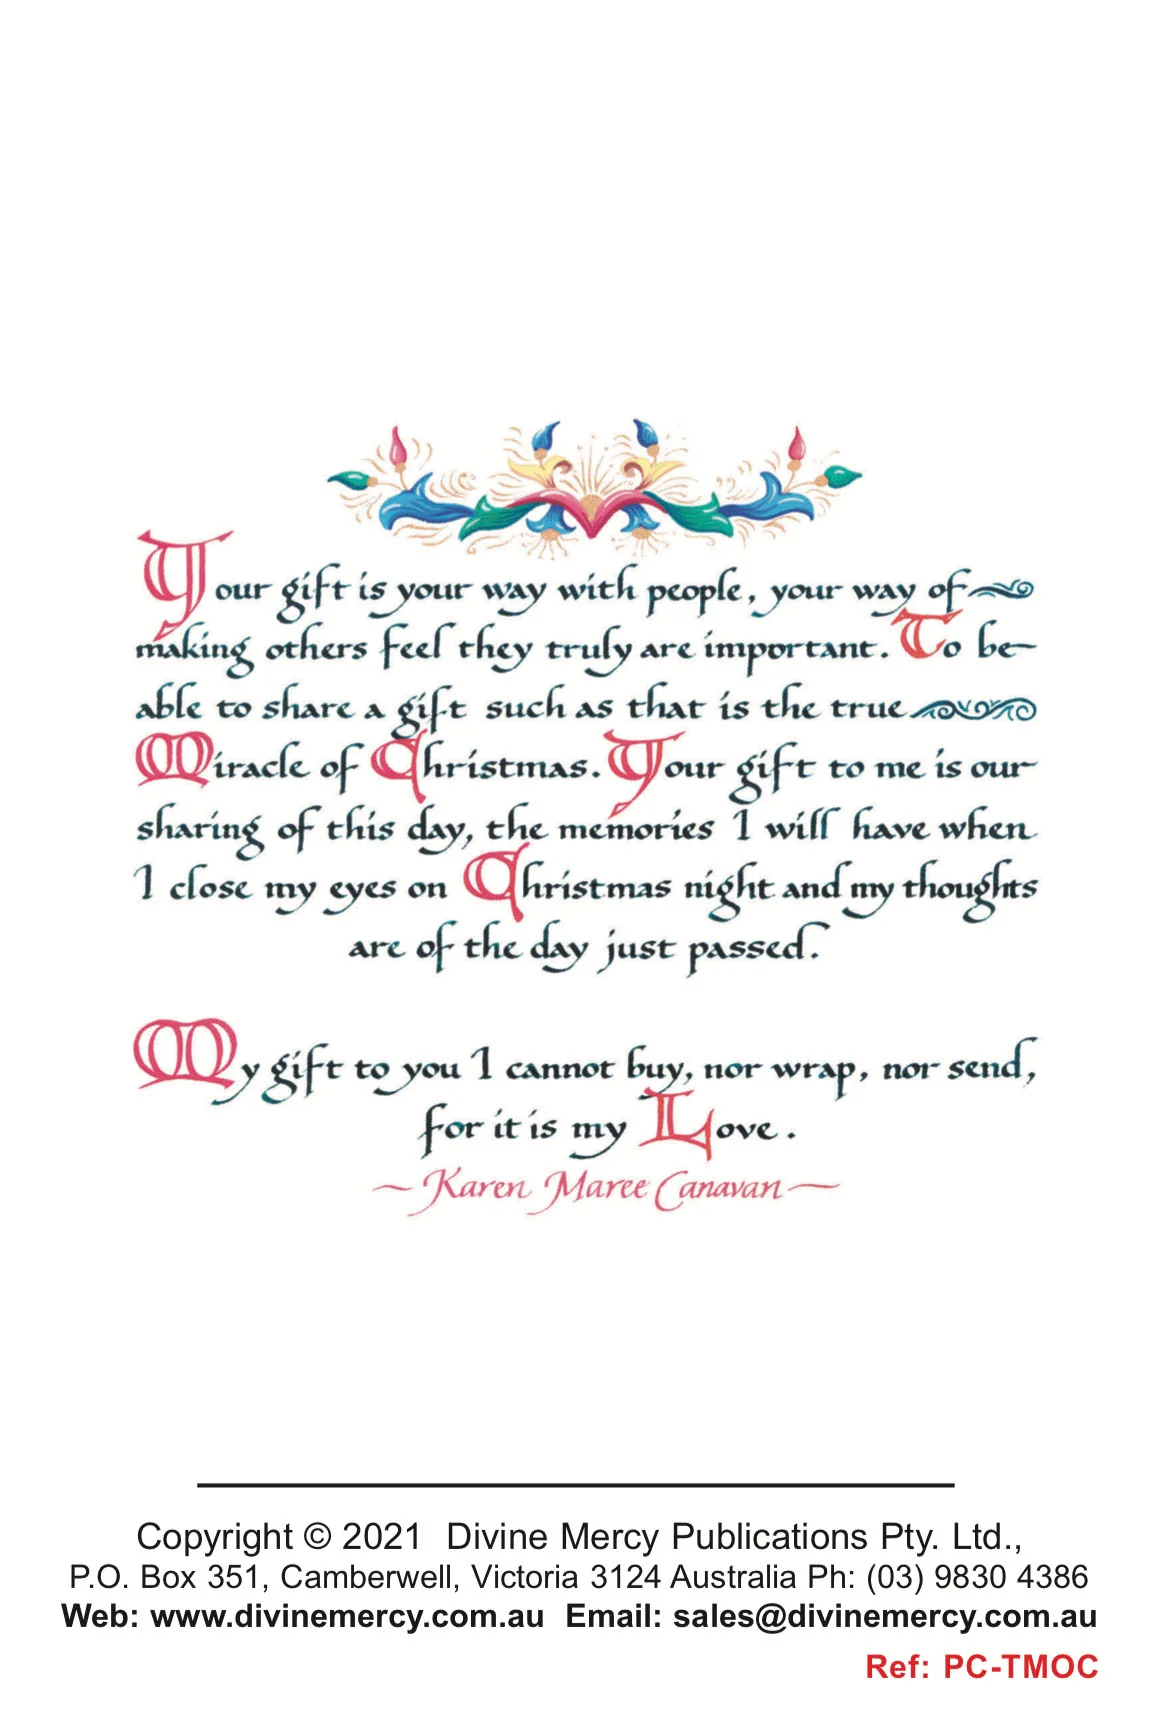 Your gift is your way with people, your way of
making others feel they truly are important. To be
able to share a gift such as that is the true
Miracle of Christmas. Your gift to me is our
sharing of this day, the memories I will have when
I close my eyes on Christmas night and my thoughts
are of the day just passed.
My gift to you I cannot buy, nor wrap, nor send,
for it is my Love.
~ Karen Maree Canavan ~
Copyright © 2021 Divine Mercy Publications Pty. Ltd.,
P.O. Box 351, Camberwell, Victoria 3124 Australia Ph: (03) 9830 4386
Web: www.divinemercy.com.au Email: sales@divinemercy.com.au
Ref: PC-TMOC